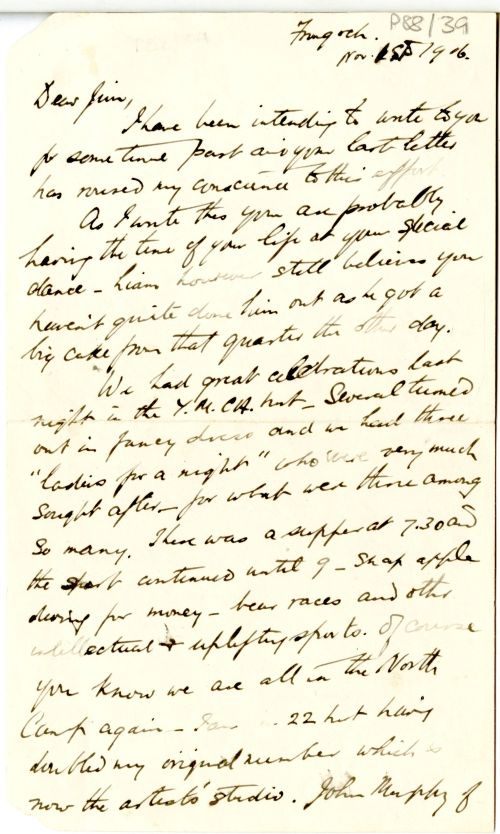 P88/39
Frongoch.
Nov. 1st 1916.
Dear Jim,
I have been intending to write to you
for some time past and your last letter
has roused my conscience to this effort.
As I write this you are probably
having the time of your life at your special
dance - Liam however still believes you
haven't quite done him out as he got a
big cake from that quarter the other day.
We had great celebrations last
night in the Y.M.C.A. hut - Several turned
out in fancy dress and we had three
"ladies for a night" who were very much
sought after - for what were three among
so many. There was a supper at 7.30 and
the sport continued until 9 - snap apple
diving for money - bear races and other
intellectual & uplifting sports. Of course
you know we are all in the North
Camp again - I am in 22 hut having
doubled my original number which is
now the artists' studio. John Murphy of